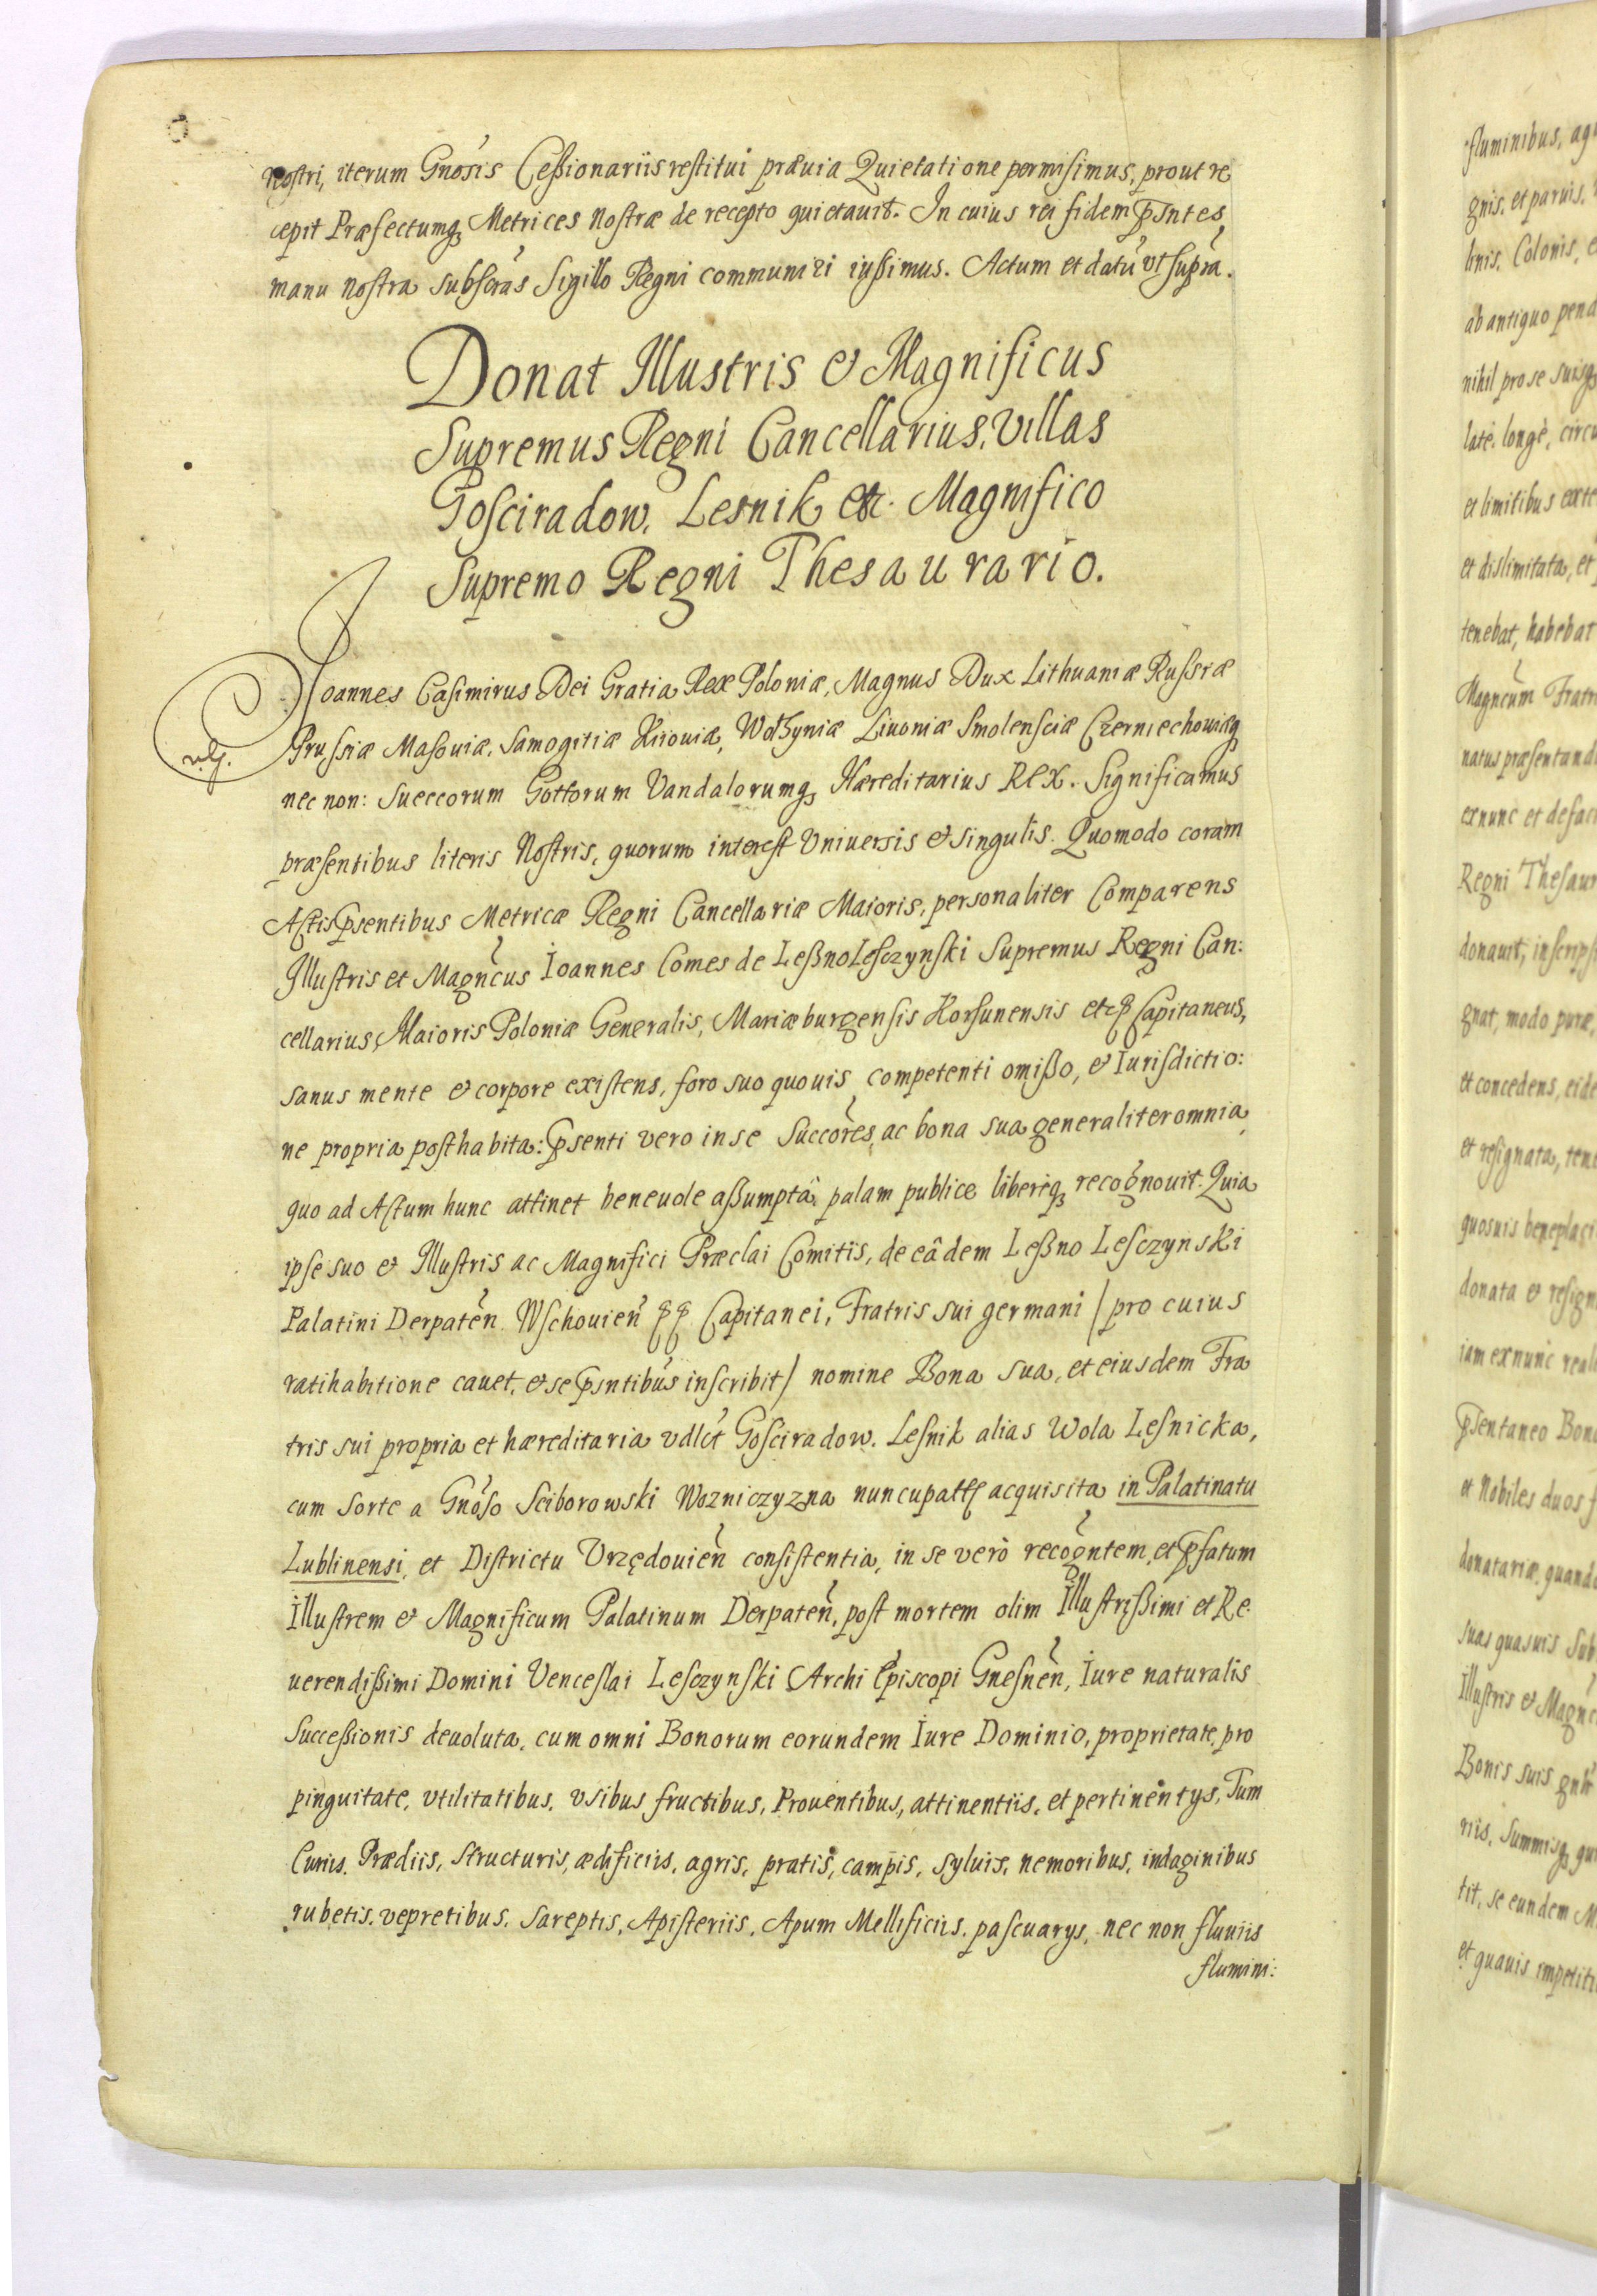 nostri, iterum Gnosis Cessionariis restitui præuia Quietatione permisimus, prout re
cepit Præfectumq Metrices Nostræ de recepto quietauit. In cuius rei fidem psntes
manu nostra subscras Sigillo Regni communiri iussimus. Actum et datu vt supra.
Donat Illustris & Magnificus
Supremus Regni Cancellarius, Villas
Gosciradow, Lesnik etc. Magnifico
Supremo Regni Thesaurario.
Joannes Casimirus Dei Gratia Rex Poloniæ, Magnus Dux Lithuaniæ Russiæ
Prussiæ Masouiæ, Samogitiæ Kiiouiæ, Wolhyniæ Liuoniæ Smolensciæ Czerniechowiæq
nec non: Sueccorum Gottorum Vandalorumq Hæreditarius Rex. Significamus
præsentibus literis Nostris, quorum interest Vniuersis & singulis. Quomodo coram
Actis psentibus Metricæ Regni Cancellariæ Maioris, personaliter Comparens
Illustris et Magncus Ioannes Comes de Leßno Lesczynski Supremus Regni Can:
cellarius, Maioris Poloniæ Generalis, Mariæburgensis Korsunensis etc Capitaneus,
sanus mente & corpore existens, foro suo quouis competenti omißo, & Iurisdictio:
ne propria posthabita: psenti vero in se Succores, ac bona sua generaliter omnia,
quo ad Actum hunc attinet beneuole aßumpta, palam publice libereq recognouit. Quia
ipse suo & Illustris ac Magnifici Præclai Comitis, de eâdem Leßno Lesczynski
Palatini Derpaten Wschouien Capitanei, Fratris sui germani / pro cuius
ratihabitione cauet, & se psntibus inscribit / nomine Bona sua, et eiusdem Fra
tris sui propria et hæreditaria vdlct Gosciradow. Lesnik alias Wola Lesnicka,
cum sorte a Gnoso Sciborowski Wozniczyzna nuncupatt acquisita in Palatinatu
Lublinensi, et Districtu Vrzędouien consistentia, in se verò recogntem, et psatum
Illustrem & Magnificum Palatinum Derpaten, post mortem olim Illustrißimi et Re
uerendißimi Domini Venceslai Lesczynski Archi Episcopi Gnesnen, Iure naturalis
Succeßionis deuoluta, cum omni Bonorum eorundem Iure Dominio, proprietate, pro
pinguitate, vtilitatibus, vsibus fructibus, Prouentibus, attinentiis, et pertinentys, Tum
Curiis, Prædiis, structuris, ædificiis, agris, pratis, campis, syluis, nemoribus, indaginibus
rubetis, vepretibus, sareptis, Apisteriis, Apum Mellificiis, pascuarys, nec non fluuiis
flumini:
fluminibus,
gnis, et paruis,
Colonis,
ab antiquo
nihil pro se suisq
latè, longè,
et limitibus
et dislimitata, et
tenebat, habebat
Magncum
natus
ex nunc et de
Regni
donauit,
gnat, modo puræ,
et concedens,
et resignata,
quosuis
donata &
iam ex nunc
psentaneo
et Nobiles duos
donatariæ,
suas quasuis
Illustris &
Bonis suis
riis, Summisq
tit, se eundem
et quauis